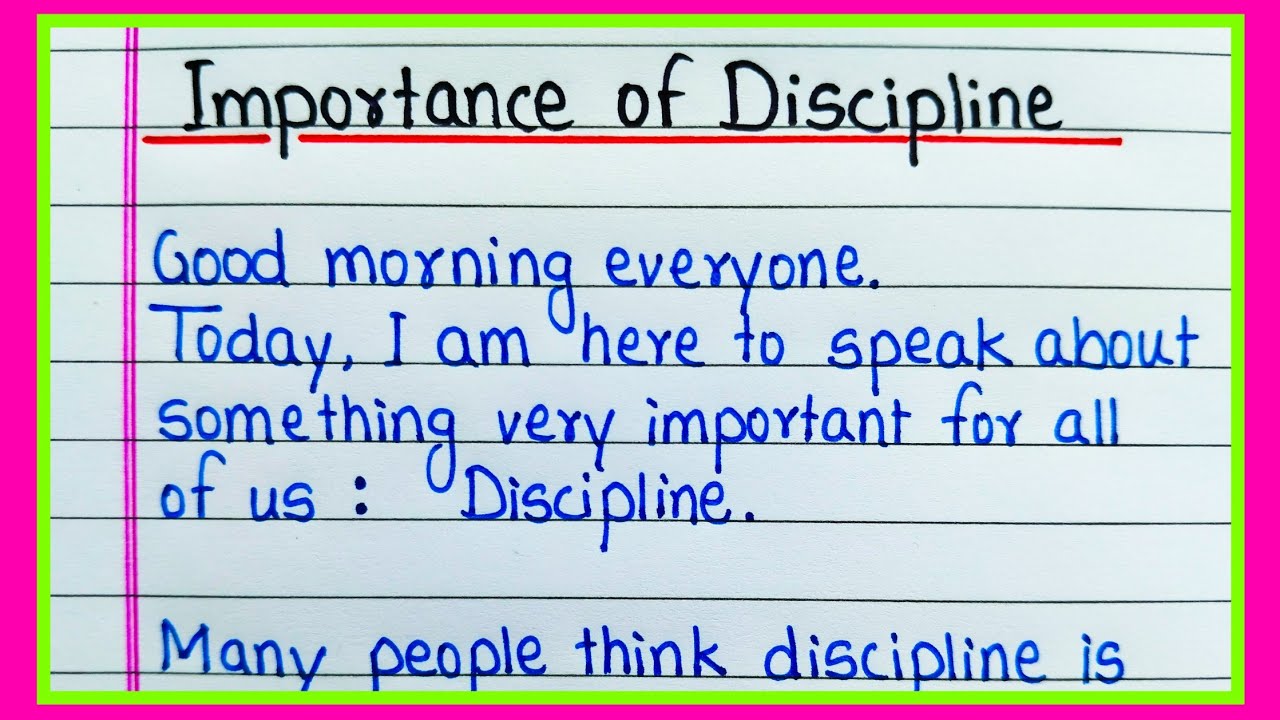 Importance of Discipline
Good morning everyone.
Today, I am here to speak about
something very important for all
of us : Discipline.
Many people think discipline is